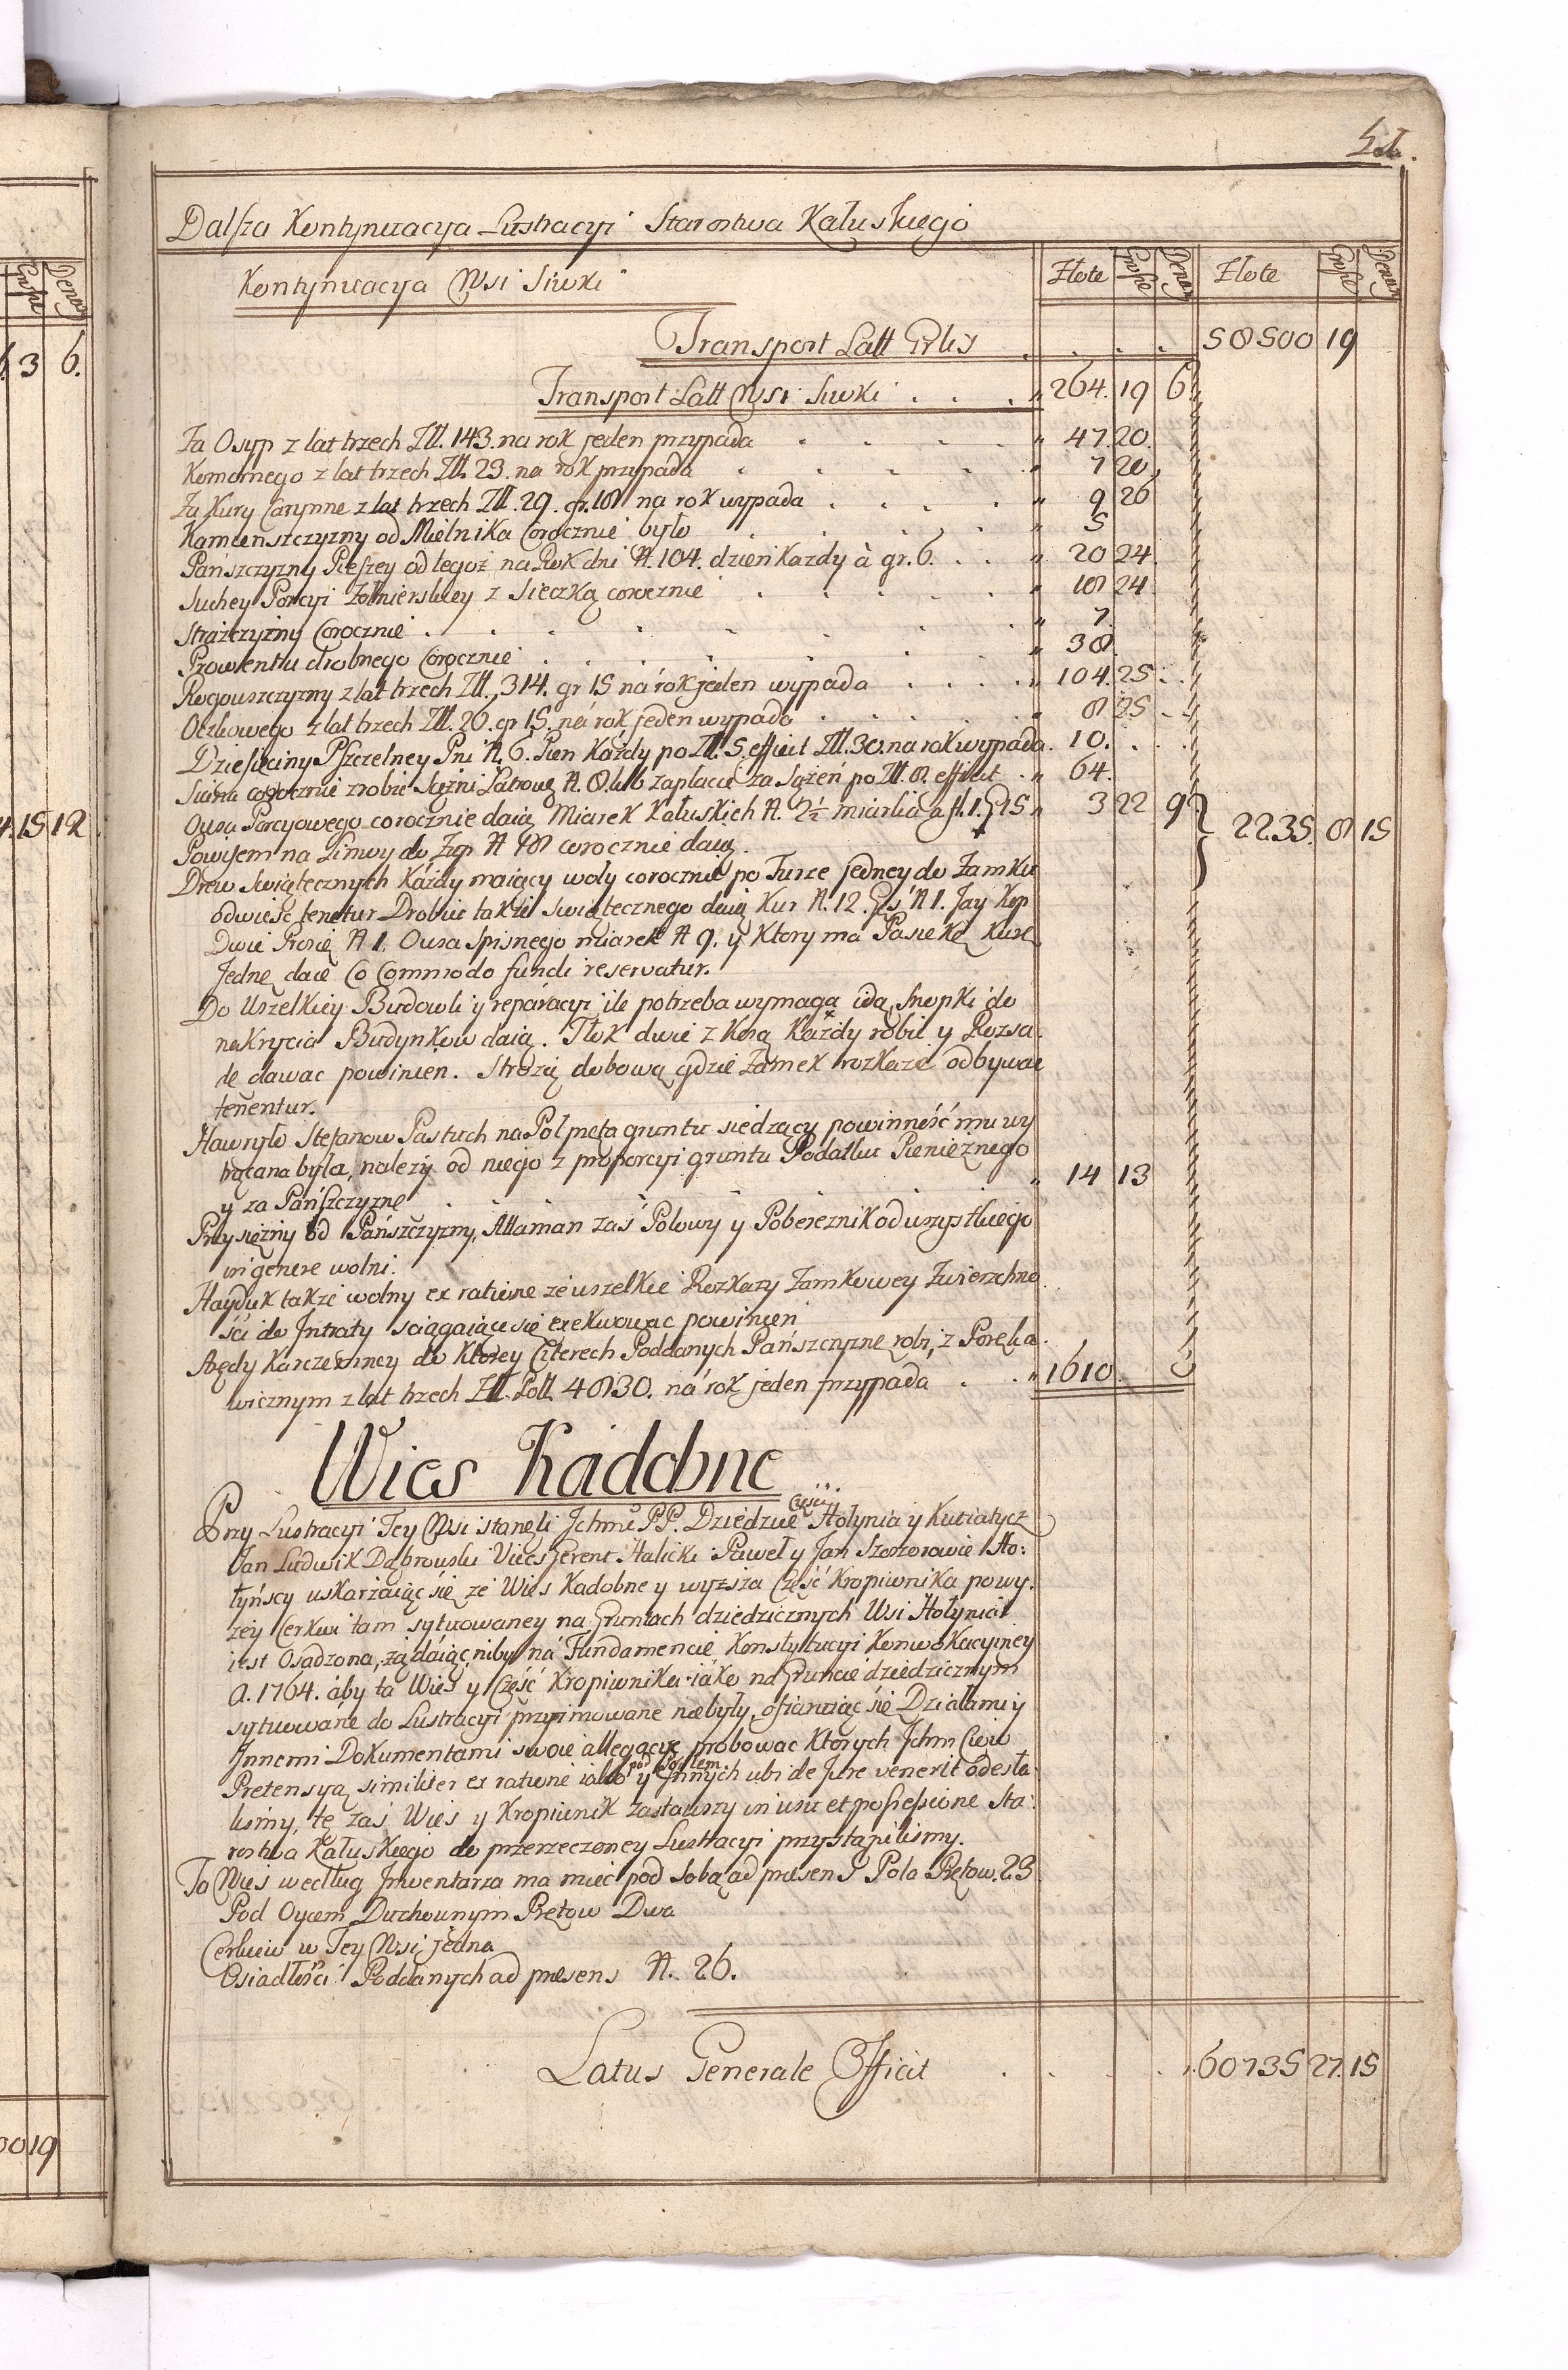 Dalsza Kontynuacya Lustracyi Starostwa Kałuskiego
Kontynuacya Wsi Siwki
Złote Grosze Denar Złote Grosze Denar
Transport Latt . . . . 58500 19
Transport Latt Wsi Siwki . . . 264. 19 6
Za Osyp z lat trzech Zll. 143. na rok jeden przypada 47. 20.
Komornego z lat trzech Zll. 23. na rok przypada 7 20
Za Kury Carynne z lat trzech Zll. 29. gr. 18 na rok wypada 9 26
Kamienszczyzny od Mielnika Corocznie było 5
Pańszczyzny Pieszey od tegoż na Rok dni N. 104. dzień każdy à gr. 6. . . 20 24.
Suchey Porcyi Żołnierskiey z Sieczką corocznie 18 24
Strażczyzny Corocznie 7.
Prowentu drobnego Corocznie 38
Rogowszczyzny z lat trzech Zll. 314. gr 15 na rok jeden wypada 104. 25
Oczkowego z lat trzech Zll. 26. gr 15. na rok jeden wypada 8 25
Dziesięciny Pszczelney Pni N. 6. Pień Każdy po Zll. 5. efficit Zll. 30. na rok wypada. 10.
corocznie zrobić Sążni N. 8. lub zapłacić za Sążeń po Zll. 8. efficit 64.
Owsa Porcyowego corocznie daią Miarek Kałuskich N. 2½ miarka a fl. 1. gr 15 3 22 9 } 2235. 8 15
Powisem na Linwy do Żup N 48 corocznie daią.
Drew Swiątecznych Każdy maiący woły corocznie po Furze jedney do Zamku
odwieść tenetur Drobiu także swiątecznego daią Kur N. 12. Gęś N 1. Jay Kop
Dwie Prosię N 1. Owsa Spisnego miarek N 9. y Ktory ma Pasiekę Kurę
Jednę daie Co Commodo fundi reservatur.
Do Wszelkiey Budowli y reparacyi ile potrzeba wymaga idą, Snopki do
nakrycia Budynkow daią. Tłok dwie z Kosą Każdy robić y Rozsa.
dę dawac powinien. Strożą dobową gdzie Zamek rozkaże odbywac
tenentur.
Hawryło Stefanow Pastuch na Poł pręta gruntu siedzący powinność mu wy
trącana była, należy od niego z proporcyi gruntu Podatku Pieniężnego
y za Pańszczyznę 14 13
Przysiężny od Pańszczyzny, Attaman zaś Polowy y Pobereznik od wszystkiego
in genere wolni.
Hayduk także wolny ex ratione że wszelkie Rozkazy Zamkowey Zwierzchno
ści do Intraty sciągaiące się exekwowac powinien
Arędy Karczemney do Ktorey Czterech Poddanych Pańszczyznę robi, z Poręka.
wicznym z lat trzech Zll. Poll. 4830. na rok jeden przypada . . 1610.
Wies Kadobne
Przy Lustracyi Tey Wsi stanęli Jchmć PP. Dziedzice Części Hołynia y Kutiatycz
Jan Ludwik Dąbrowski Vicesgerent Halicki Paweł y Jan Szeszorowie Ho:
łyńscy uskarżaiąc się że Wieś Kadobne y wyższa Część Kropiwnika powy.
żey Cerkwi tam sytuowaney na Gruntach dziedzicznych Wsi Hołynia
iest Osadzona, żądaiąc niby na Fundamencie Konstytucyi Konwokacyiney
A. 1764. aby ta Wieś y Część Kropiwnika iako na Gruncie dziedzicznym
sytuowane do Lustracyi przyimowane niebyły, ofiaruiąc się Działami y
Jnnemi Dokumentami swoie allegacye probowac Ktorych Jchm Ciow
Pretensyą similiter ex ratione iako y pod Innych ubi de Jure venerit odesła.
liśmy, tę zaś Wieś y Kropiwnik zastawszy in usu et possessione Sta:
rostwa Kałuskiego do przerzeczoney Lustracyi przystąpiliśmy.
Ta Wieś według Jnwentarza ma mieć pod Sobą ad præsens Pola Prętow. 23
Pod Oycem Duchownym Prętow Dwa
Cerkiew w Tey Wsi jedna
Osiadłości Poddanych ad præsens N. 26.
Latus Generale Efficit . . . . 60735 27. 15